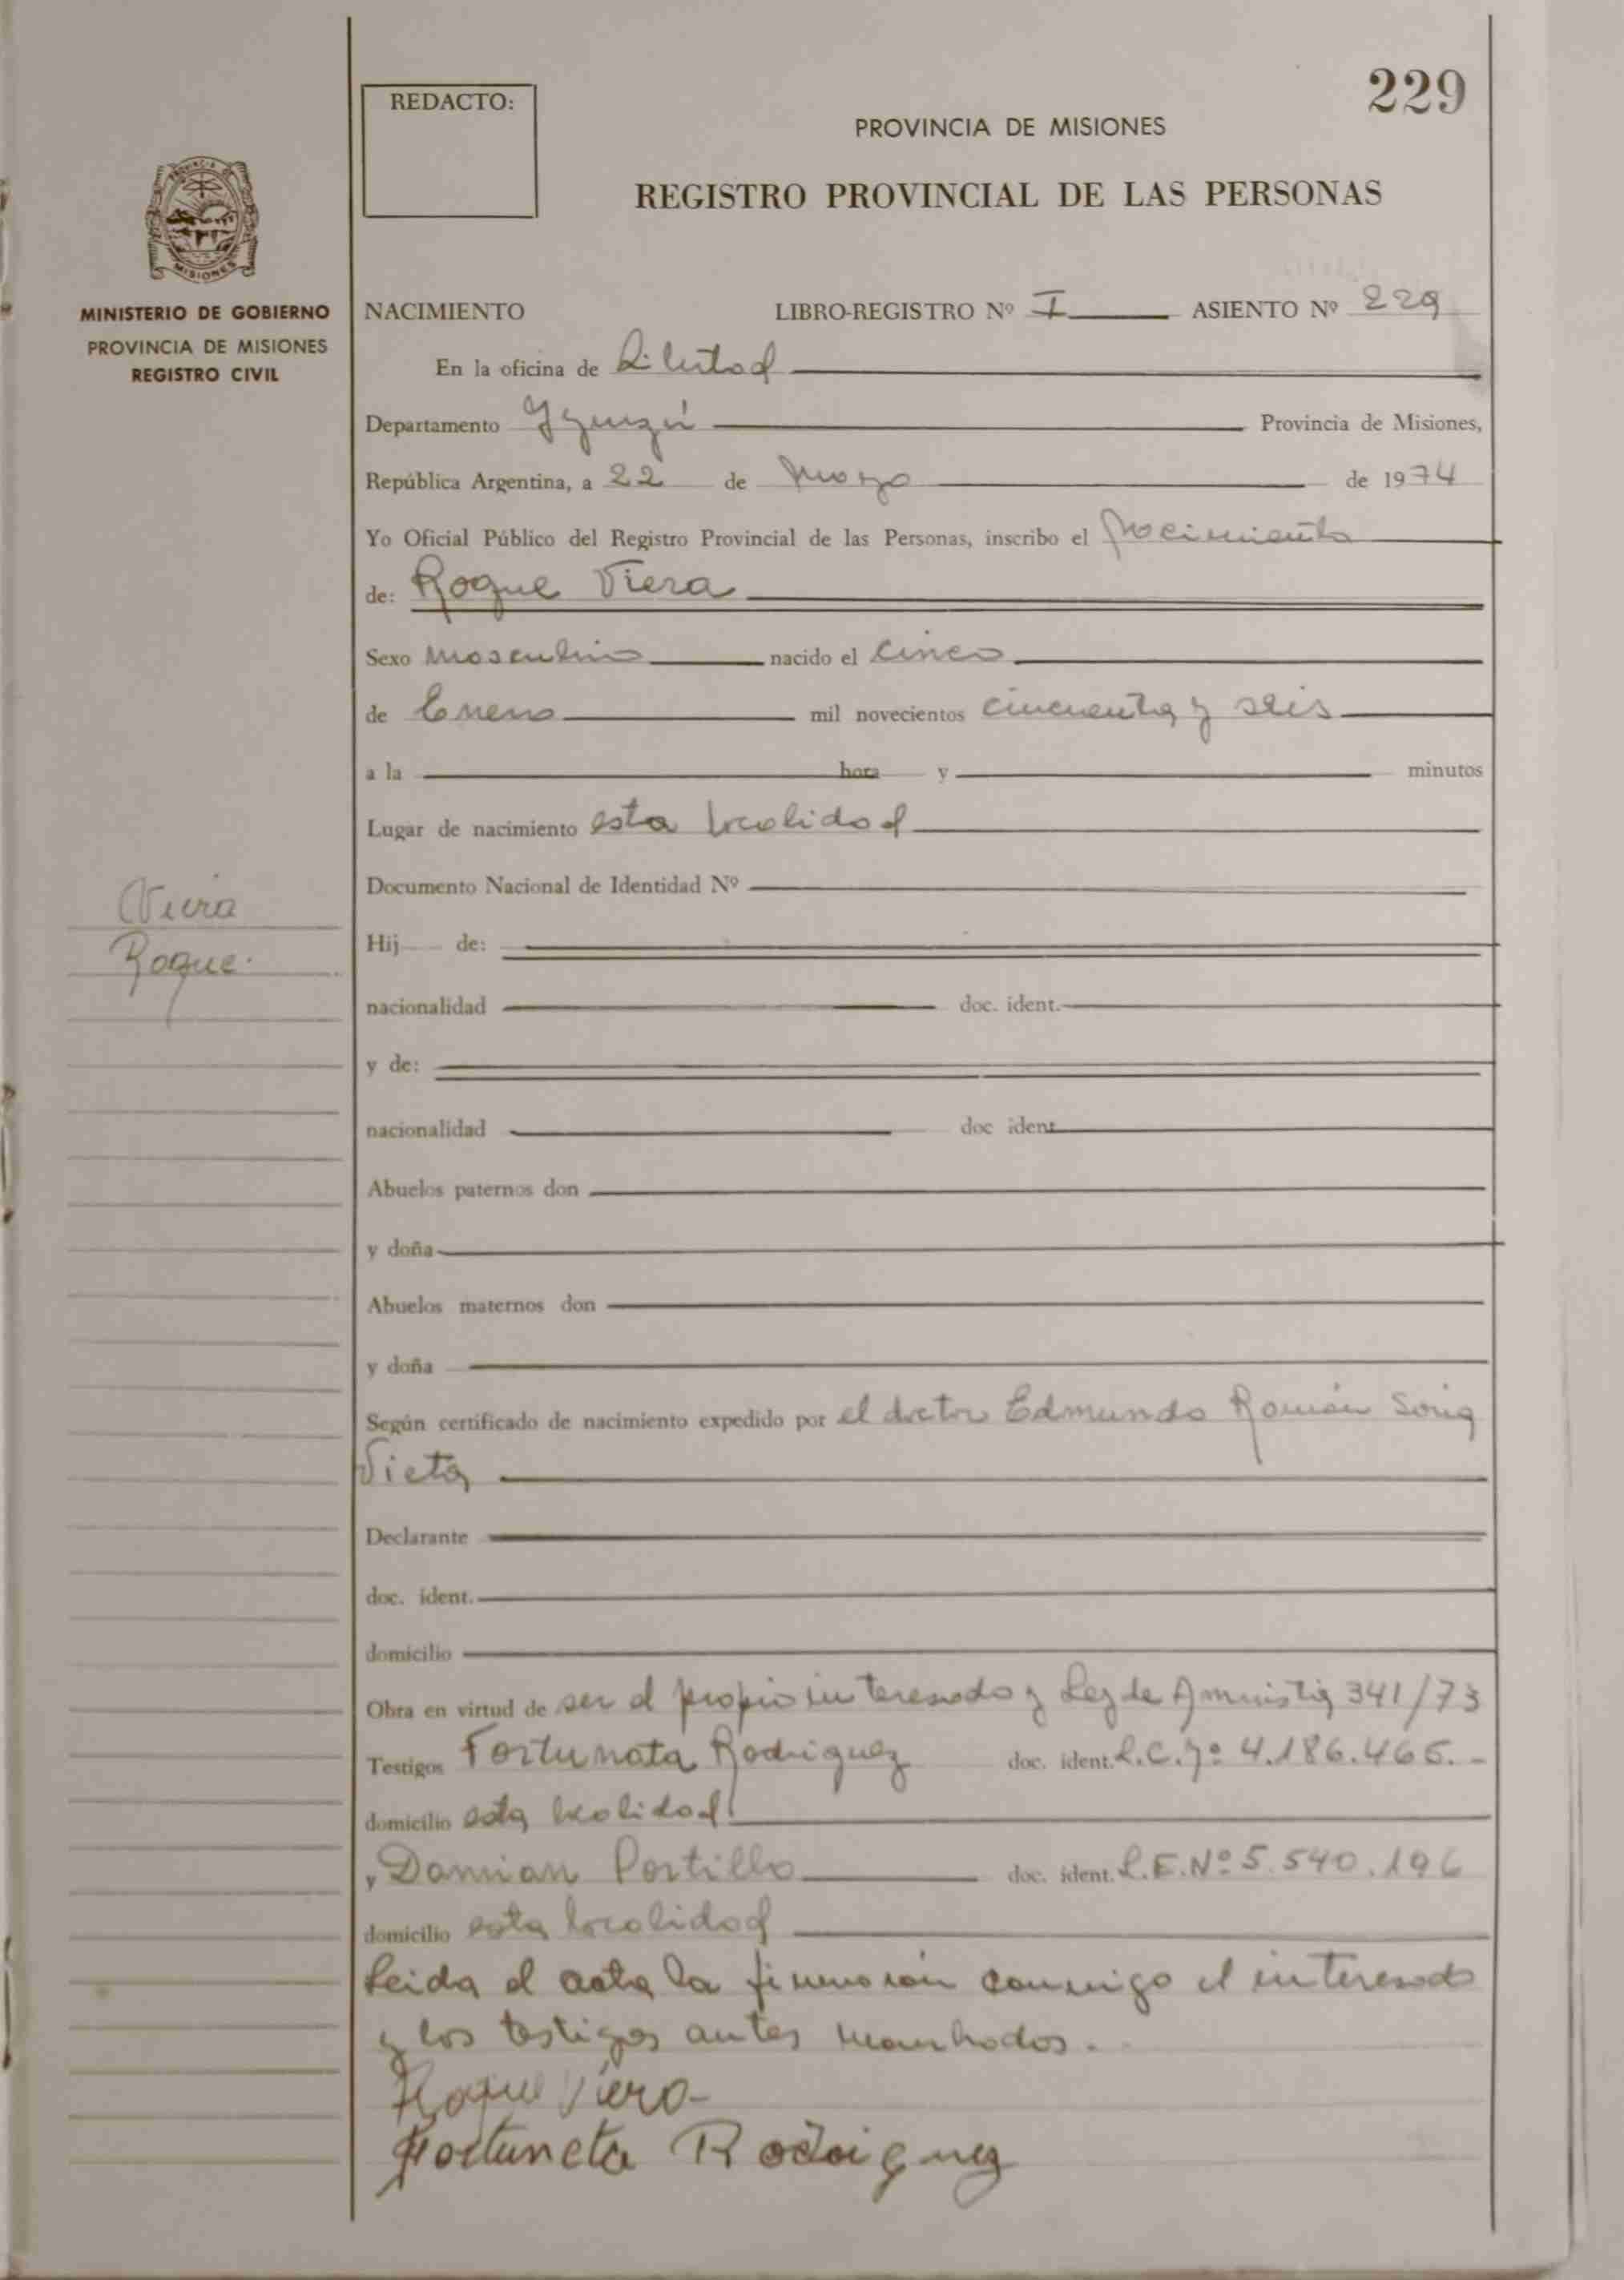 229
REDACTO:
PROVINCIA DE MISIONES
REGISTRO PROVINCIAL DE LAS PERSONAS
PROVINCIA DE
MISIONES
MINISTERIO DE GOBIERNO
PROVINCIA DE MISIONES
REGISTRO CIVIL
NACIMIENTO LIBRO-REGISTRO Nº I ASIENTO Nº 229
En la oficina de Libertad
Departamento Iguazú Provincia de Misiones,
República Argentina, a 22 de Marzo de 1974
Yo Oficial Público del Registro Provincial de las Personas, inscribo el nacimiento
de: Roque Viera
Sexo masculino nacido el cinco
de Enero mil novecientos cincuenta y seis
a la hora y minutos
Lugar de nacimiento esta localidad
Documento Nacional de Identidad Nº
Viera
Roque.
Hij de:
nacionalidad doc. ident.
y de:
nacionalidad doc ident
Abuelos paternos don
y doña
Abuelos maternos don
y doña
Según certificado de nacimiento expedido por el doctor Edmundo Román Soria
Vieta
Declarante
doc. ident.
domicilio
Obra en virtud de ser el propio interesado y Ley de Amnistia 341/73
Testigos Fortunata Rodriguez doc. ident. L.C.Nº 4.186.465.-
domicilio esta localidad
y Damian Portillo doc. ident. L.E.Nº 5.540.196
domicilio esta localidad
Leida el acta la firmaron conmigo el interesado
y los testigos antes
Roque Viera
Fortuneta Rodriguez